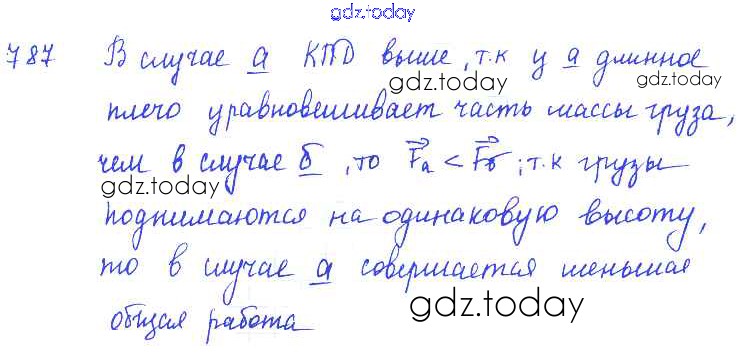 gdz.today
787 В случае а КПД выше, т.к у а длинное
gdz.today gdz.today
плечо уравновешивает часть массы груза,
чем в случае б, то Fа < Fб; т.к грузы
gdz.today
поднимаются на одинаковую высоту,
то в случае а совершается меньшая
gdz.today
общая работа